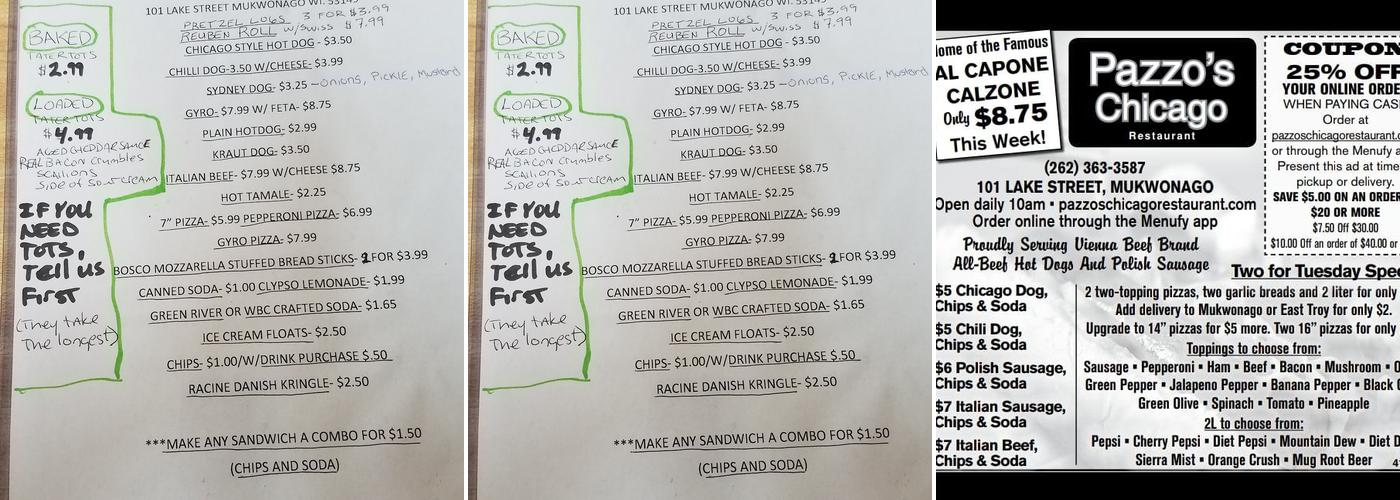 101 LAKE STREET MUKWONAGO WI. 53149
PRETZEL LOGS 3 FOR $3.99
REUBEN ROLL W/SWISS $7.99
CHICAGO STYLE HOT DOG - $3.50
CHILLI DOG-3.50 W/CHEESE- $3.99
SYDNEY DOG- $3.25 -ONIONS, PICKLE, MUSTARD
GYRO- $7.99 W/ FETA- $8.75
PLAIN HOTDOG- $2.99
KRAUT DOG- $3.50
ITALIAN BEEF- $7.99 W/CHEESE $8.75
HOT TAMALE- $2.25
7" PIZZA- $5.99 PEPPERONI PIZZA- $6.99
GYRO PIZZA- $7.99
BOSCO MOZZARELLA STUFFED BREAD STICKS- 2 FOR $3.99
CANNED SODA- $1.00 CLYPSO LEMONADE- $1.99
GREEN RIVER OR WBC CRAFTED SODA- $1.65
ICE CREAM FLOATS- $2.50
CHIPS- $1.00/W/DRINK PURCHASE $.50
RACINE DANISH KRINGLE- $2.50
***MAKE ANY SANDWICH A COMBO FOR $1.50
(CHIPS AND SODA)
BAKED
TATER TOTS
$2.99
LOADED
TATER TOTS
$4.99
AGED CHEDDAR SAUCE
REAL BACON CRUMBLES
SCALLIONS
SIDE OF SOUR CREAM
IF YOU
NEED
TOTS,
Tell us
First
(They take
The longest)
101 LAKE STREET MUKWONAGO WI. 53149
PRETZEL LOGS 3 FOR $3.99
REUBEN ROLL W/SWISS $7.99
CHICAGO STYLE HOT DOG - $3.50
CHILLI DOG-3.50 W/CHEESE- $3.99
SYDNEY DOG- $3.25 -ONIONS, PICKLE, MUSTARD
GYRO- $7.99 W/ FETA- $8.75
PLAIN HOTDOG- $2.99
KRAUT DOG- $3.50
ITALIAN BEEF- $7.99 W/CHEESE $8.75
HOT TAMALE- $2.25
7" PIZZA- $5.99 PEPPERONI PIZZA- $6.99
GYRO PIZZA- $7.99
BOSCO MOZZARELLA STUFFED BREAD STICKS- 2 FOR $3.99
CANNED SODA- $1.00 CLYPSO LEMONADE- $1.99
GREEN RIVER OR WBC CRAFTED SODA- $1.65
ICE CREAM FLOATS- $2.50
CHIPS- $1.00/W/DRINK PURCHASE $.50
RACINE DANISH KRINGLE- $2.50
***MAKE ANY SANDWICH A COMBO FOR $1.50
(CHIPS AND SODA)
BAKED
TATER TOTS
$2.99
LOADED
TATER TOTS
$4.99
AGED CHEDDAR SAUCE
REAL BACON CRUMBLES
SCALLIONS
SIDE OF SOUR CREAM
IF YOU
NEED
TOTS,
Tell us
First
(They take
The longest)
ome of the Famous
AL CAPONE
CALZONE
Only $8.75
This Week!
Pazzo's
Chicago
Restaurant
(262) 363-3587
101 LAKE STREET, MUKWONAGO
Open daily 10am ▪ pazzoschicagorestaurant.com
Order online through the Menufy app
Proudly Serving Vienna Beef Brand
All-Beef Hot Dogs And Polish Sausage
COUPON
25% OFF
YOUR ONLINE ORDE
WHEN PAYING CAS
Order at
pazzoschicagorestaurant.c
or through the Menufy a
Present this ad at time
pickup or delivery.
SAVE $5.00 ON AN ORDER
$20 OR MORE
$7.50 Off $30.00
$10.00 Off an order of $40.00 or
$5 Chicago Dog,
Chips & Soda
$5 Chili Dog,
Chips & Soda
$6 Polish Sausage,
Chips & Soda
$7 Italian Sausage,
Chips & Soda
$7 Italian Beef,
Chips & Soda
Two for Tuesday Spec
2 two-topping pizzas, two garlic breads and 2 liter for only
Add delivery to Mukwonago or East Troy for only $2.
Upgrade to 14" pizzas for $5 more. Two 16" pizzas for only
Toppings to choose from:
Sausage ▪ Pepperoni ▪ Ham ▪ Beef ▪ Bacon ▪ Mushroom ▪ O
Green Pepper ▪ Jalapeno Pepper ▪ Banana Pepper ▪ Black O
Green Olive ▪ Spinach ▪ Tomato ▪ Pineapple
2L to choose from:
Pepsi ▪ Cherry Pepsi ▪ Diet Pepsi ▪ Mountain Dew ▪ Diet D
Sierra Mist ▪ Orange Crush ▪ Mug Root Beer